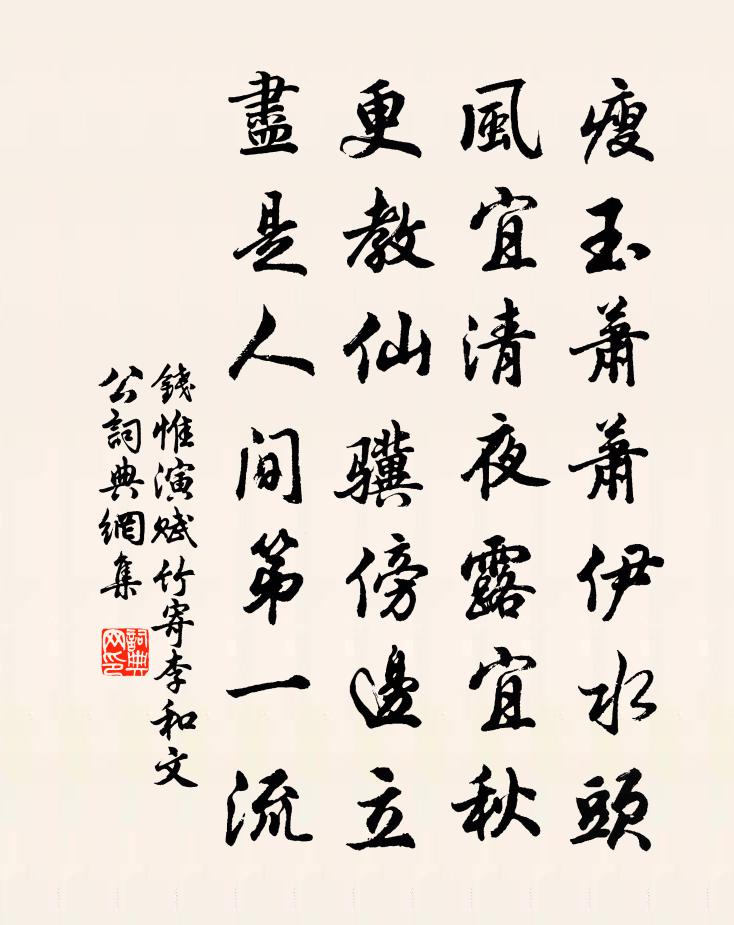 瘦玉蕭蕭伊水頭
風宜清夜露宜秋
更教仙驥傍邊立
盡是人間第一流
錢惟演賦竹寄李和文
公詞典網集
詞典
网印